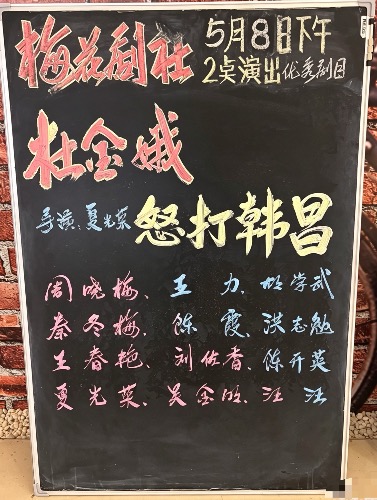 梅花剧社 5月8日下午
2点演出优秀剧目
杜金娥
导演:夏光荣 怒打韩昌
周晓梅、王 力、胡学武
秦冬梅、陈 霞、洪志勉
王春艳、刘佐香、陈开英
夏光荣、吴金城、汪 汪